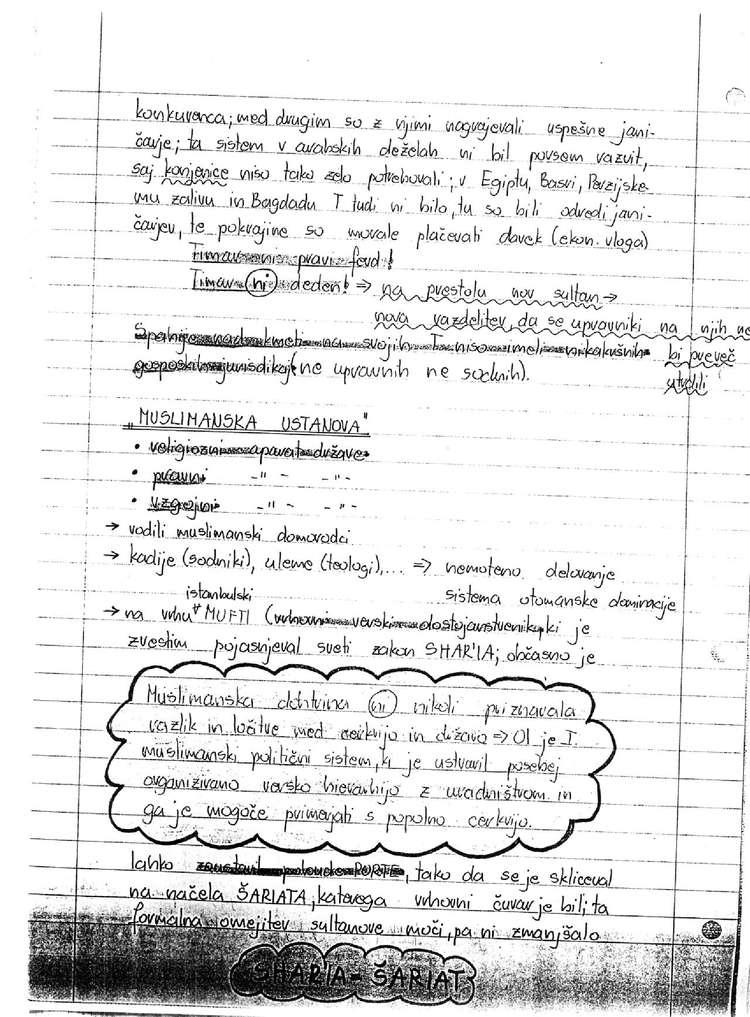 konkurenca; med drugim so z njimi nagrajevali uspešne jani-
čarje; ta sistem v arabskih deželah ni bil povsem razvit,
saj konjenice niso tako zelo potrebovali; v Egiptu, Basri, Perzijske-
mu zalivu in Bagdadu T tudi ni bilo, tu so bili odredi jani-
čarjev, te pokrajine so morale plačevati davek (ekon. vloga)
Timar ni pravi fevd!
Timar ni deden! ⇒ na prestolu nov sultan →
nova razdelitev, da se upravniki na njih ne
Spahije na svojih T niso imeli nikakušnih bi preveč
gosposkih jurisdikcij (ne upravnih ne sodnih). utrdili
„MUSLIMANSKA USTANOVA"
• religiozni aparat države
• pravni -"- -"-
• vzgojni -"- -"-
→ vodili muslimanski domorodci
→ kadije (sodniki), uleme (teologi),... ⇒ nemoteno delovanje
sistema otomanske dominacije
istanbulski
→ na vrhu MUFTI (vrhovni verski dostojanstvenik, ki je
zvestim pojasnjeval sveti zakon SHAR'IA; občasno je
Muslimanska doktrina ni nikoli priznavala
razlik in ločitve med cerkvijo in državo ⇒ OI je I.
muslimanski politični sistem, ki je ustvaril posebej
organizirano versko hierarhijo z uradništvom in
ga je mogoče primerjati s popolno cerkvijo.
lahko PORTE, tako da se je skliceval
na načela ŠARIATA, katerega vrhovni čuvar je bil; ta
formalna omejitev sultanove moči, pa ni zmanjšalo
SHAR'IA - ŠARIAT